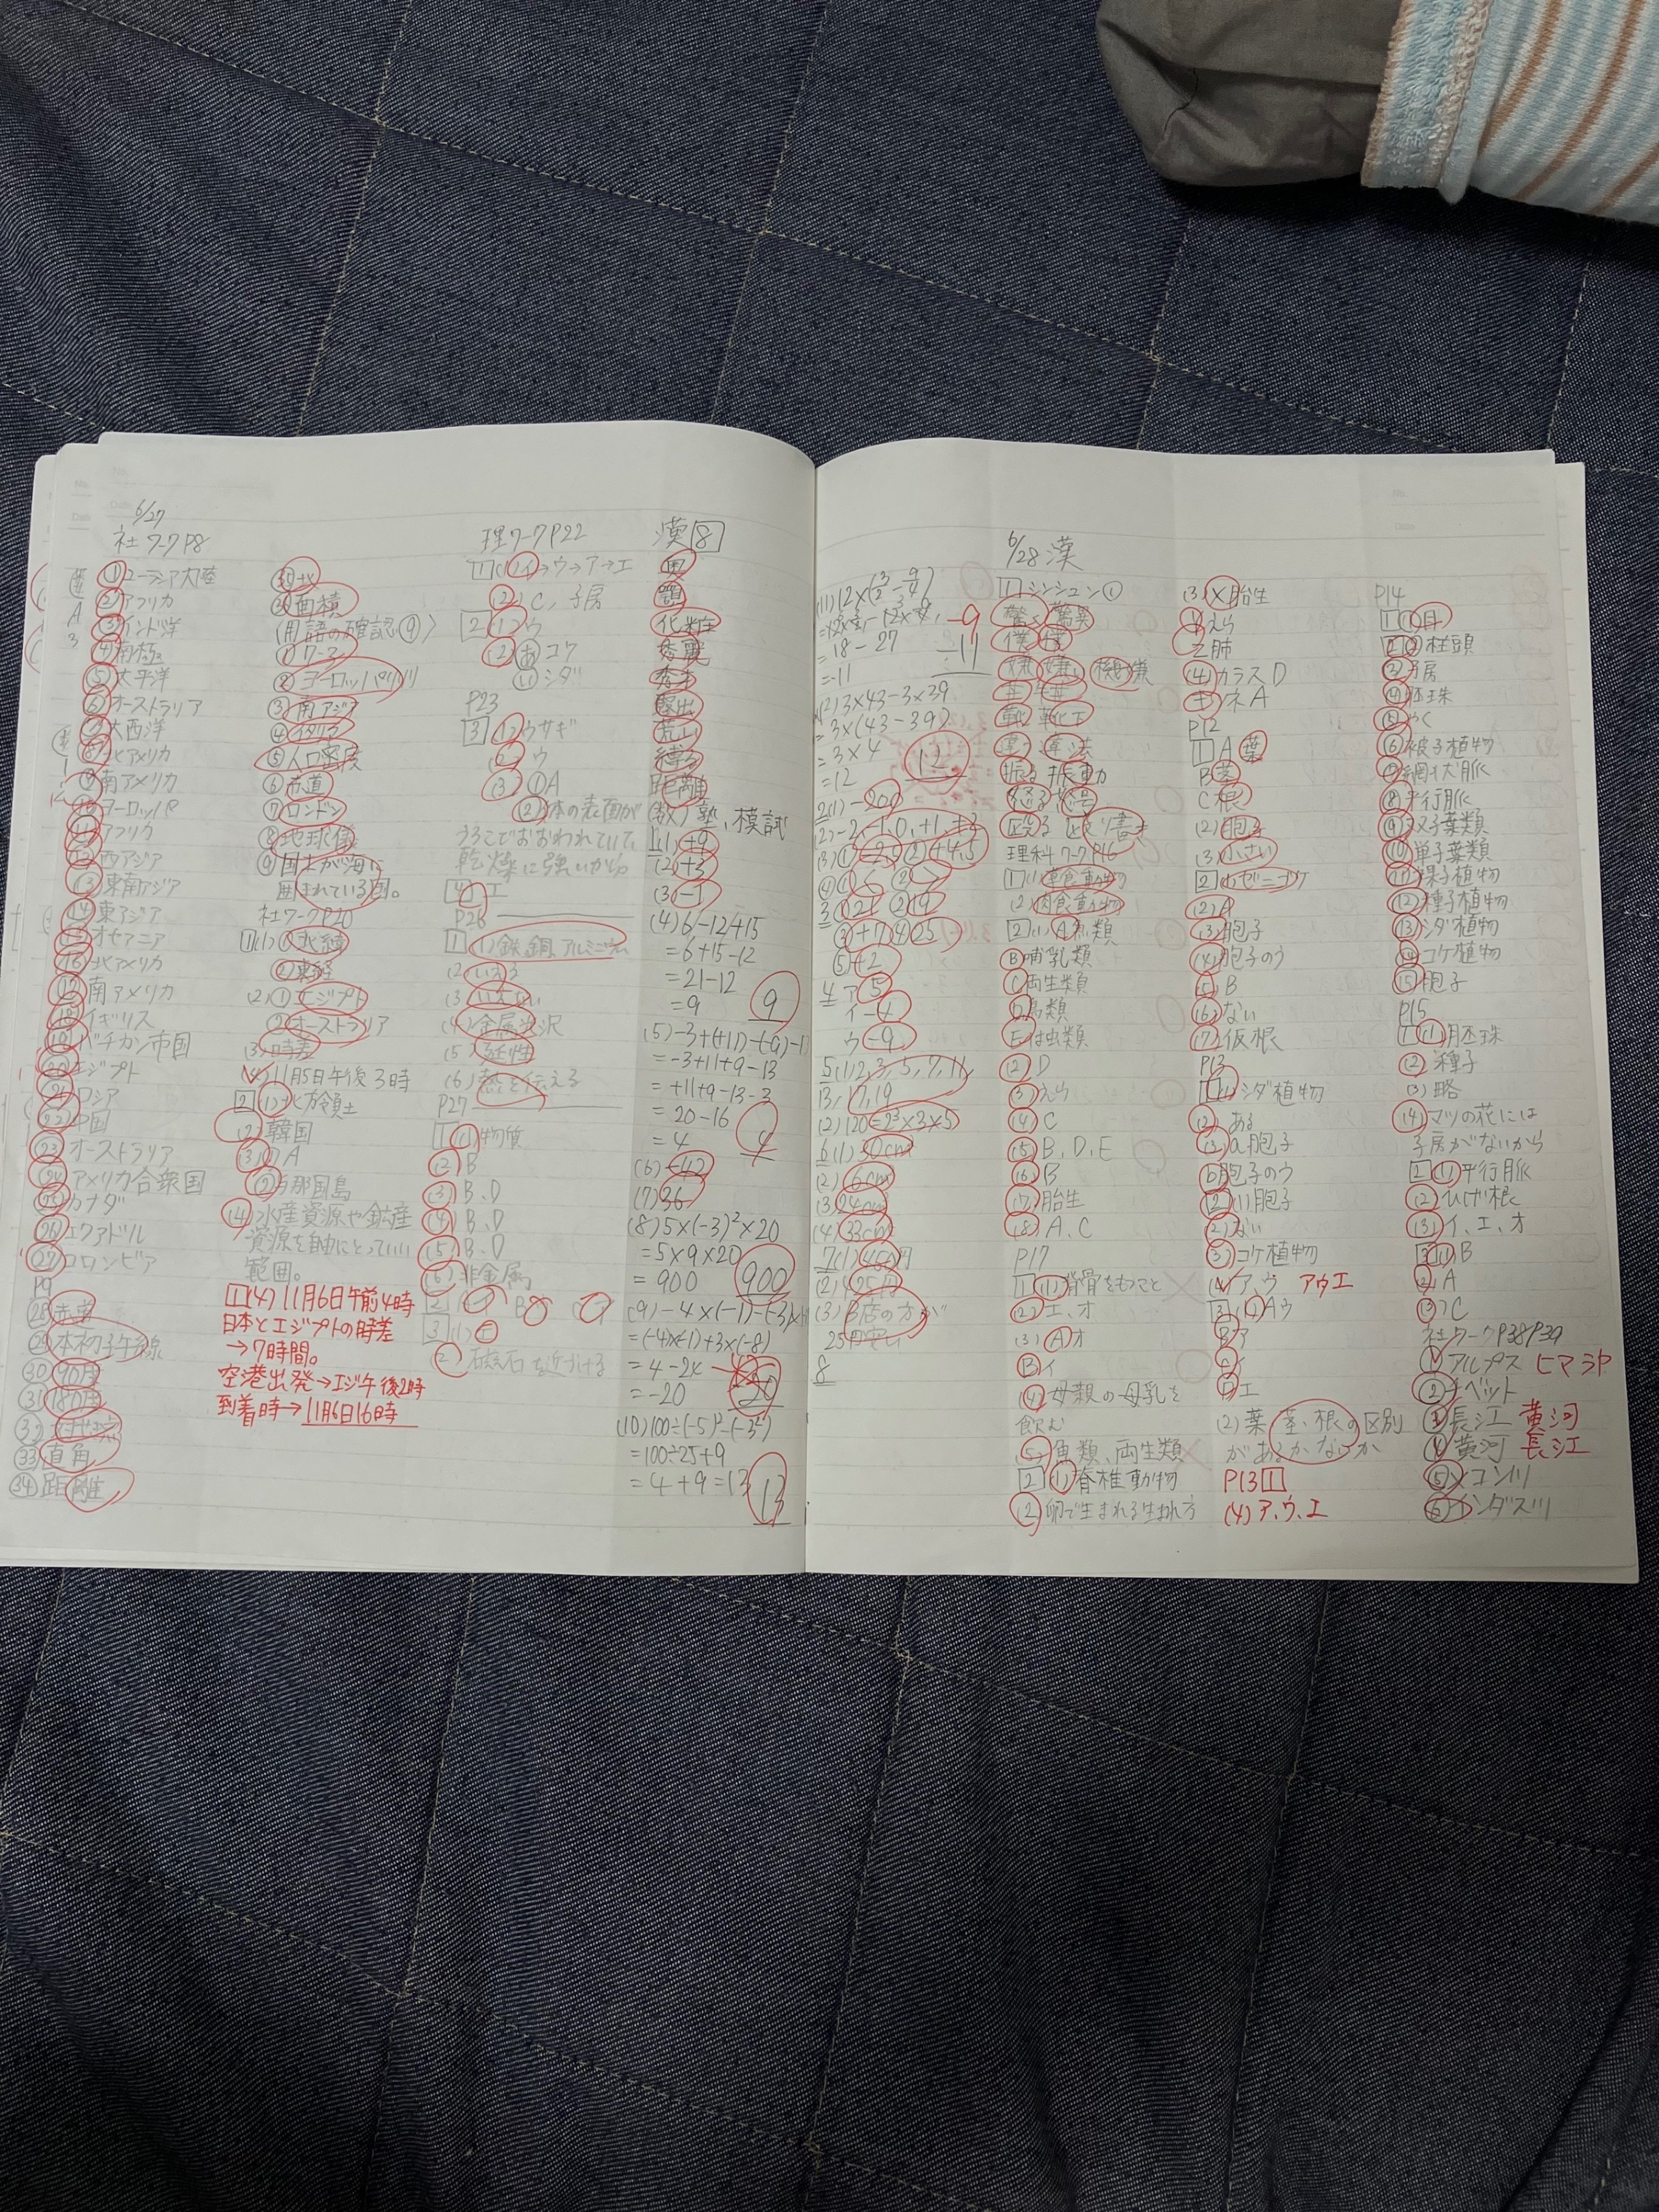 6/27
社ワークP8
①ユーラシア大陸
②アフリカ
③インド洋
④南極
⑤太平洋
⑥オーストラリア
⑦大西洋
⑧北アメリカ
⑨南アメリカ
⑩ヨーロッパ
⑪アフリカ
⑫西アジア
⑬東南アジア
⑭東アジア
⑮オセアニア
⑯北アメリカ
⑰南アメリカ
⑱イギリス
⑲バチカン市国
⑳エジプト
㉑ロシア
㉒中国
㉓オーストラリア
㉔アメリカ合衆国
㉕カナダ
㉖エクアドル
㉗コロンビア
P9
㉘赤道
㉙本初子午線
㉚90度
㉛180度
㉝直角
㉞距離
㊱面積
(用語の確認⑨)
③南アジア
④イタリア
⑤人口密度
⑥赤道
⑦ロンドン
⑧地球儀
⑨国土が海に
囲まれている国。
社ワークP10
1(1)①北緯
②東経
(2)①エジプト
②オーストラリア
(3)時差
(4)11月5日午後3時
2(1)北方領土
(2)韓国
(3)①A
②与那国島
(4)水産資源や鉱産
資源を自由にとっていい
範囲。
1(4)11月6日午前4時
日本とエジプトの時差
→7時間。
空港出発→エジ午後2時
到着時→11月6日16時
理ワークP22
1(1)イ→ウ→ア→エ
(2)C、子房
2(1)ウ
(2)あコケ
いシダ
P23
3(1)ウサギ
(2)ウ
(3)①A
②体の表面が
うろこでおおわれていて、
乾燥に強いから
4エ
P26
1(1)鉄、銅、アルミニウム
(2)いえる
(3)いえない
(4)金属光沢
(5)延性
(6)熱を伝える
P27
1(1)物質
(2)B
(3)B、D
(4)B、D
(5)B、D
(6)非金属
(2)磁石を近づける
漢8
化粧
秀才
露出
荒い
縛る
距離
(数)塾、模試
1(1)+9
(2)+3
(3)-1
(4)6-12+15
=6+15-12
=21-12
=9
9
(5)-3+(+11)-(-9)-13
=-3+11+9-13
=+11+9-13-3
=20-16
=4
4
(6)-42
(7)36
(8)5×(-3)²×20
=5×9×20
=900
900
=(-4)×(-1)+3×(-8)
=4-24
=-20
(10)100÷(-5)²-(-3²)
=100÷25+9
=4+9=13
13
=18-27
=-11
-9
(12)3×43-3×39
=3×(43-39)
=3×4
=12
12
ウ-9
5(1)2,3,5,7,11,
13,17,19
(2)120=2³×3×5
6(1)30cm
(2)6cm
(3)24cm
(4)33cm
(2)425円
(3)B店の方が
25円安い
8
6/28漢
1シンシュン①
驚く驚異
僕 僕
振る 振動
殴る 殴り書き
理科ワークP16
1(1)草食動物
(2)肉食動物
2(1)A魚類
B哺乳類
C両生類
D鳥類
Eは虫類
(2)D
(3)えら
(4)C
(5)B、D、E
(6)B
(7)胎生
(8)A、C
P17
1(1)背骨をもつこと
(2)エ、オ
(3)Aオ
Bイ
(4)母親の母乳を
飲む
(5)魚類、両生類
2(1)脊椎動物
(2)卵で生まれる生まれ方
(3)X胎生
Yえら
Z肺
(4)カラスD
キネA
P12
1A葉
B茎
C根
(2)胞子
(3)小さい
2(1)ゼニゴケ
(2)A
(3)胞子
(4)胞子のう
(5)B
(6)ない
(7)仮根
P13
1(1)シダ植物
(2)ある
(3)a胞子
b胞子のう
2(1)胞子
(2)ない
(3)コケ植物
(4)ア、ウ アウエ
3(1)Aウ
Bア
Cイ
Dエ
(2)葉、茎、根の区別
があるかないか
P13 1
(4)ア、ウ、エ
P14
2①柱頭
③子房
④胚珠
⑤やく
⑥被子植物
⑦網状脈
⑧平行脈
⑨双子葉類
⑩単子葉類
⑪裸子植物
⑫種子植物
⑬シダ植物
⑭コケ植物
⑮胞子
P15
1(1)胚珠
(2)種子
(3)略
(4)マツの花には
子房がないから
2(1)平行脈
(2)ひげ根
(3)イ、エ、オ
3(1)B
(2)A
(3)C
社ワークP38P39
①アルプス ヒマラヤ
②チベット
③長江 黄河
④黄河 長江
⑤メコン川
⑥インダス川